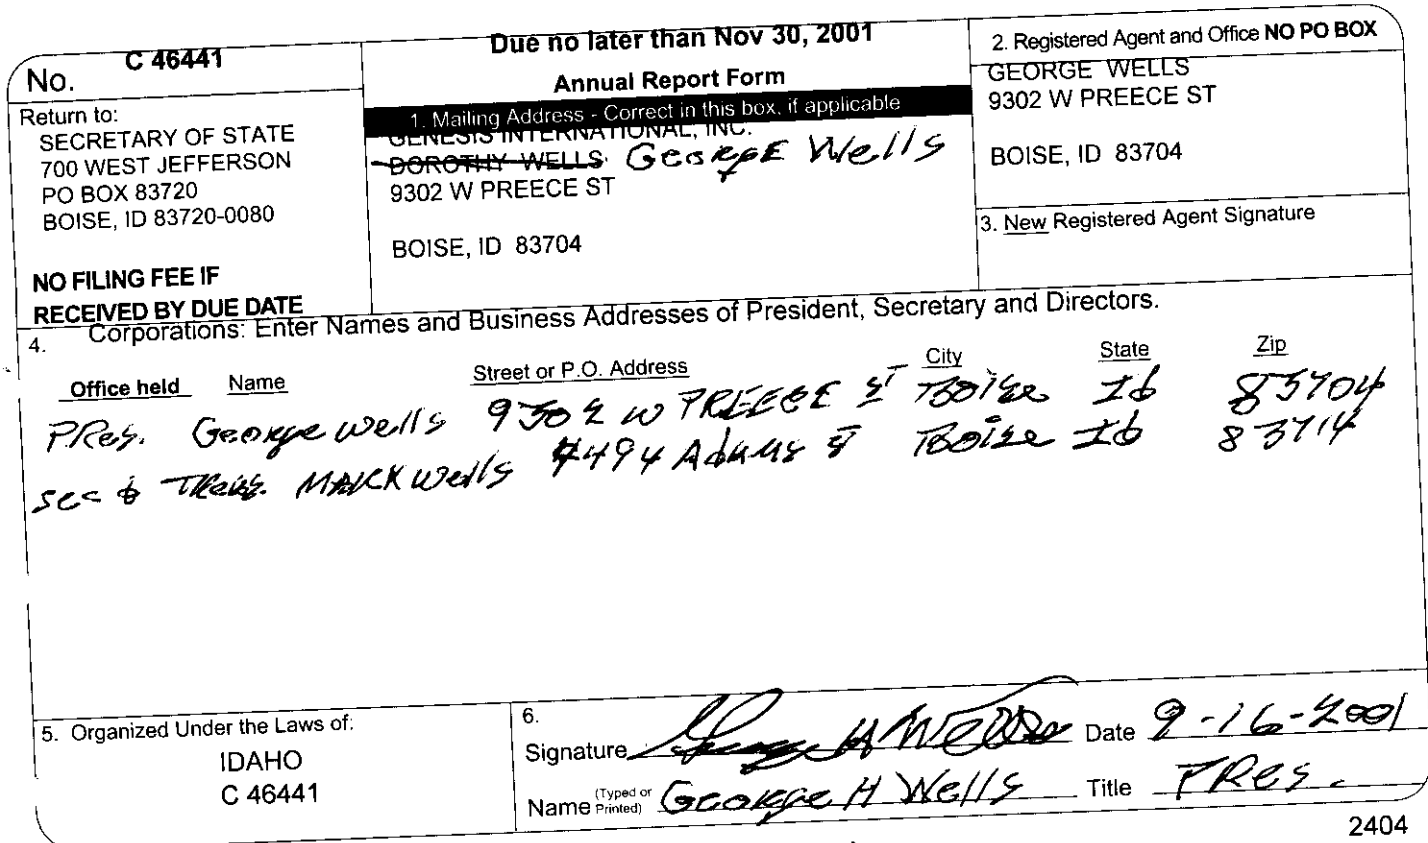 No. C 46441
Return to:
SECRETARY OF STATE
700 WEST JEFFERSON
PO BOX 83720
BOISE, ID 83720-0080
NO FILING FEE IF
RECEIVED BY DUE DATE
Due no later than Nov 30, 2001
Annual Report Form
1. Mailing Address - Correct in this box, if applicable
GENESIS INTERNATIONAL, INC.
DOROTHY WELLS George Wells
9302 W PREECE ST
BOISE, ID 83704
2. Registered Agent and Office NO PO BOX
GEORGE WELLS
9302 W PREECE ST
BOISE, ID 83704
3. New Registered Agent Signature
4. Corporations: Enter Names and Business Addresses of President, Secretary and Directors.
Office held Name Street or P.O. Address City State Zip
PRes. George wells 9302 W PREECE ST Boise Id 83704
sec & Treas. MARK Wells 4494 Adams ST Boise Id 83714
5. Organized Under the Laws of:
IDAHO
C 46441
6.
Signature George H Wells Date 9-16-2001
Name (Typed or Printed) George H Wells Title PRes.
2404